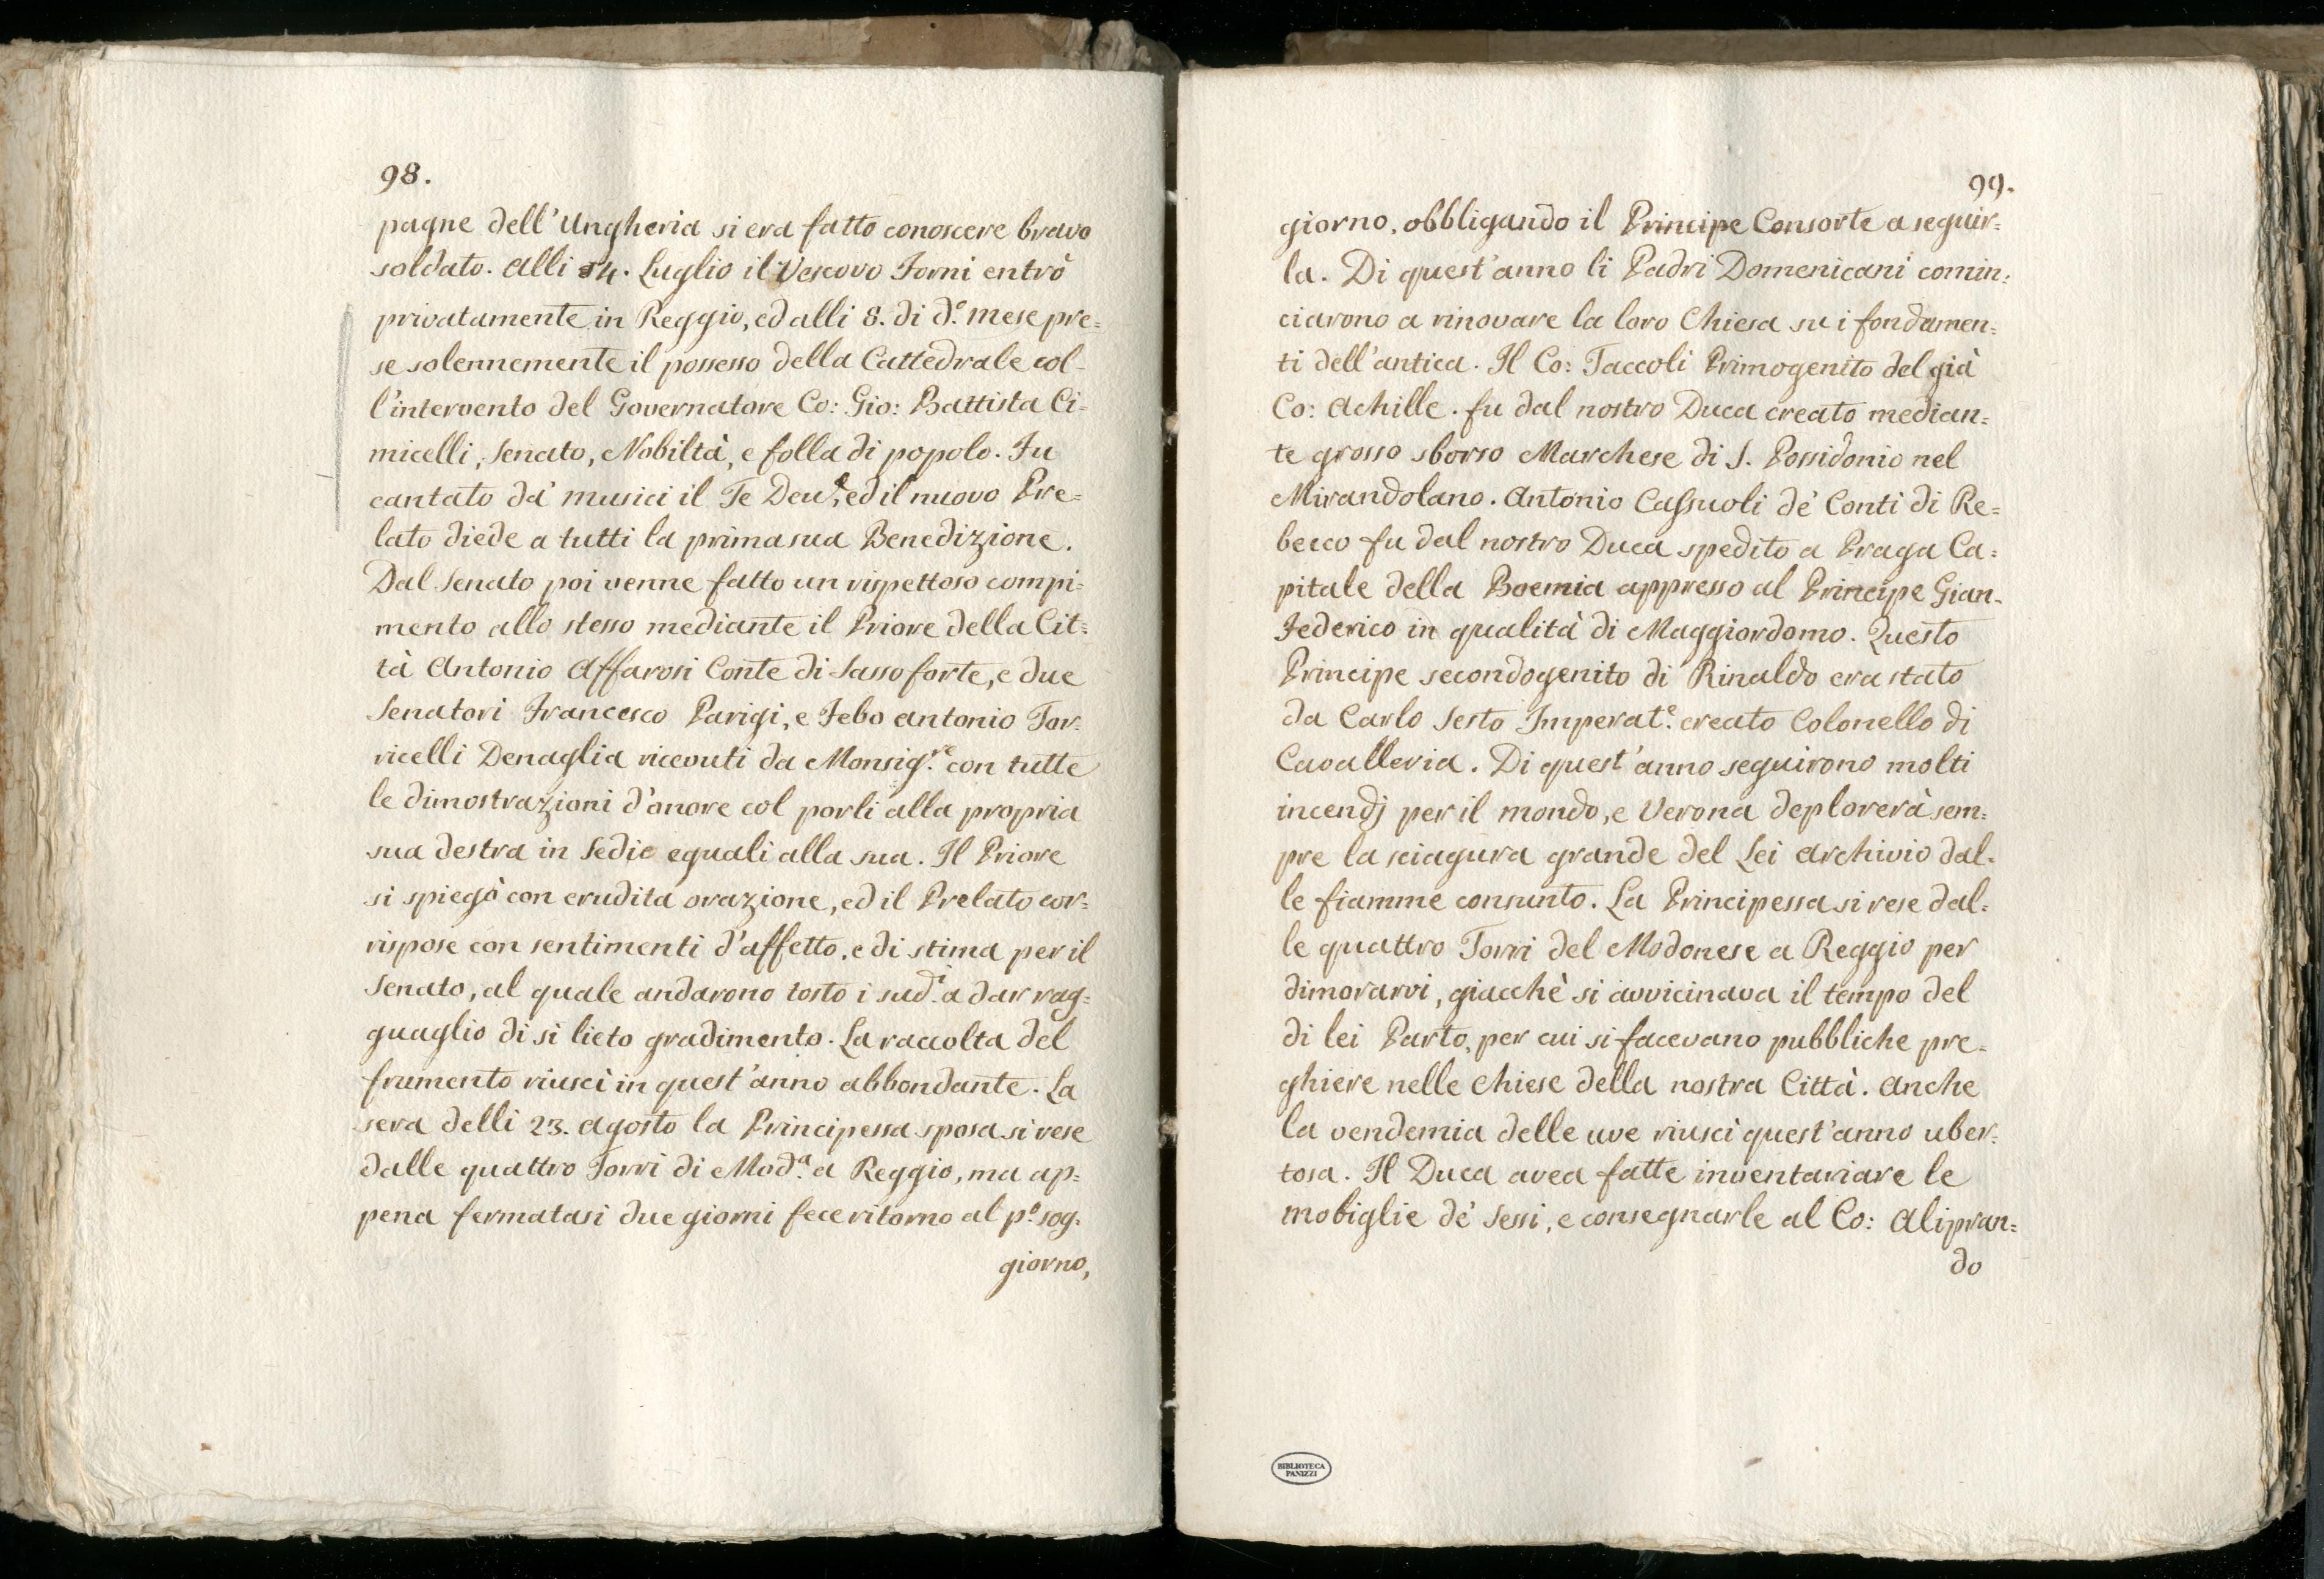 98.
pagne dell'Ungheria si era fatto conoscere bravo
soldato. Alli 4. Luglio il Vescovo Forni entrò
privatamente in Reggio, ed alli 8. di d.º mese pre=
se solennemente il possesso della Cattedrale col-
l'intervento del Governatore Co: Gio: Battista Ci=
micelli, Senato, Nobiltà, e folla di popolo. Fu
cantato da' musici il Te Deu, ed il nuovo Pre=
lato diede a tutti la prima sua Benedizione.
Dal Senato poi venne fatto un rispettoso compi=
mento allo stesso mediante il Priore della Cit=
tà Antonio Affarosi Conte di Sassoforte, e due
Senatori Francesco Parigi, e Febo Antonio Tor=
ricelli Denaglia ricevuti da Monsig.re con tutte
le dimostrazioni d'onore col porli alla propria
sua destra in Sedie eguali alla sua. Il Priore
si spiegò con erudita orazione, ed il Prelato cor=
rispose con sentimenti d'affetto, e di stima per il
Senato, al quale andarono tosto i sud.i a dar rag=
guaglio di si lieto gradimento. La raccolta del
frumento riuscì in quest'anno abbondante. La
sera delli 23. Agosto la Principessa sposa si rese
dalle quattro Torri di Mod.a a Reggio, ma ap=
pena fermatasi due giorni fece ritorno al p.º sog=
giorno,
99.
giorno, obbligando il Principe Consorte a seguir=
la. Di quest'anno li Padri Domenicani comin=
ciarono a rinovare la loro Chiesa su i fondamen=
ti dell'antica. Il Co: Taccoli Primogenito del già
Co: Achille. fu dal nostro Duca creato median=
te grosso sborso Marchese di S. Possidonio nel
Mirandolano. Antonio Cassuoli de' Conti di Re=
becco fu dal nostro Duca spedito a Praga Ca=
pitale della Boemia appresso al Principe Gian-
Federico in qualità di Maggiordomo. Questo
Principe secondogenito di Rinaldo era stato
da Carlo Sesto Imperat.e creato Colonello di
Cavalleria. Di quest'anno seguirono molti
incendj per il mondo, e Verona deplorerà sem=
pre la sciagura grande del Lei Archivio dal=
le fiamme consunto. La Principessa si rese dal=
le quattro Torri del Modonese a Reggio per
dimorarvi, giacchè si avvicinava il tempo del
di lei Parto, per cui si facevano pubbliche pre=
ghiere nelle Chiese della nostra Città. Anche
la vendemia delle uve riuscì quest'anno uber=
tosa. Il Duca avea fatte inventariare le
mobiglie de' Sessi, e consegnarle al Co: Alipran=
do
BIBLIOTECA
PANIZZI